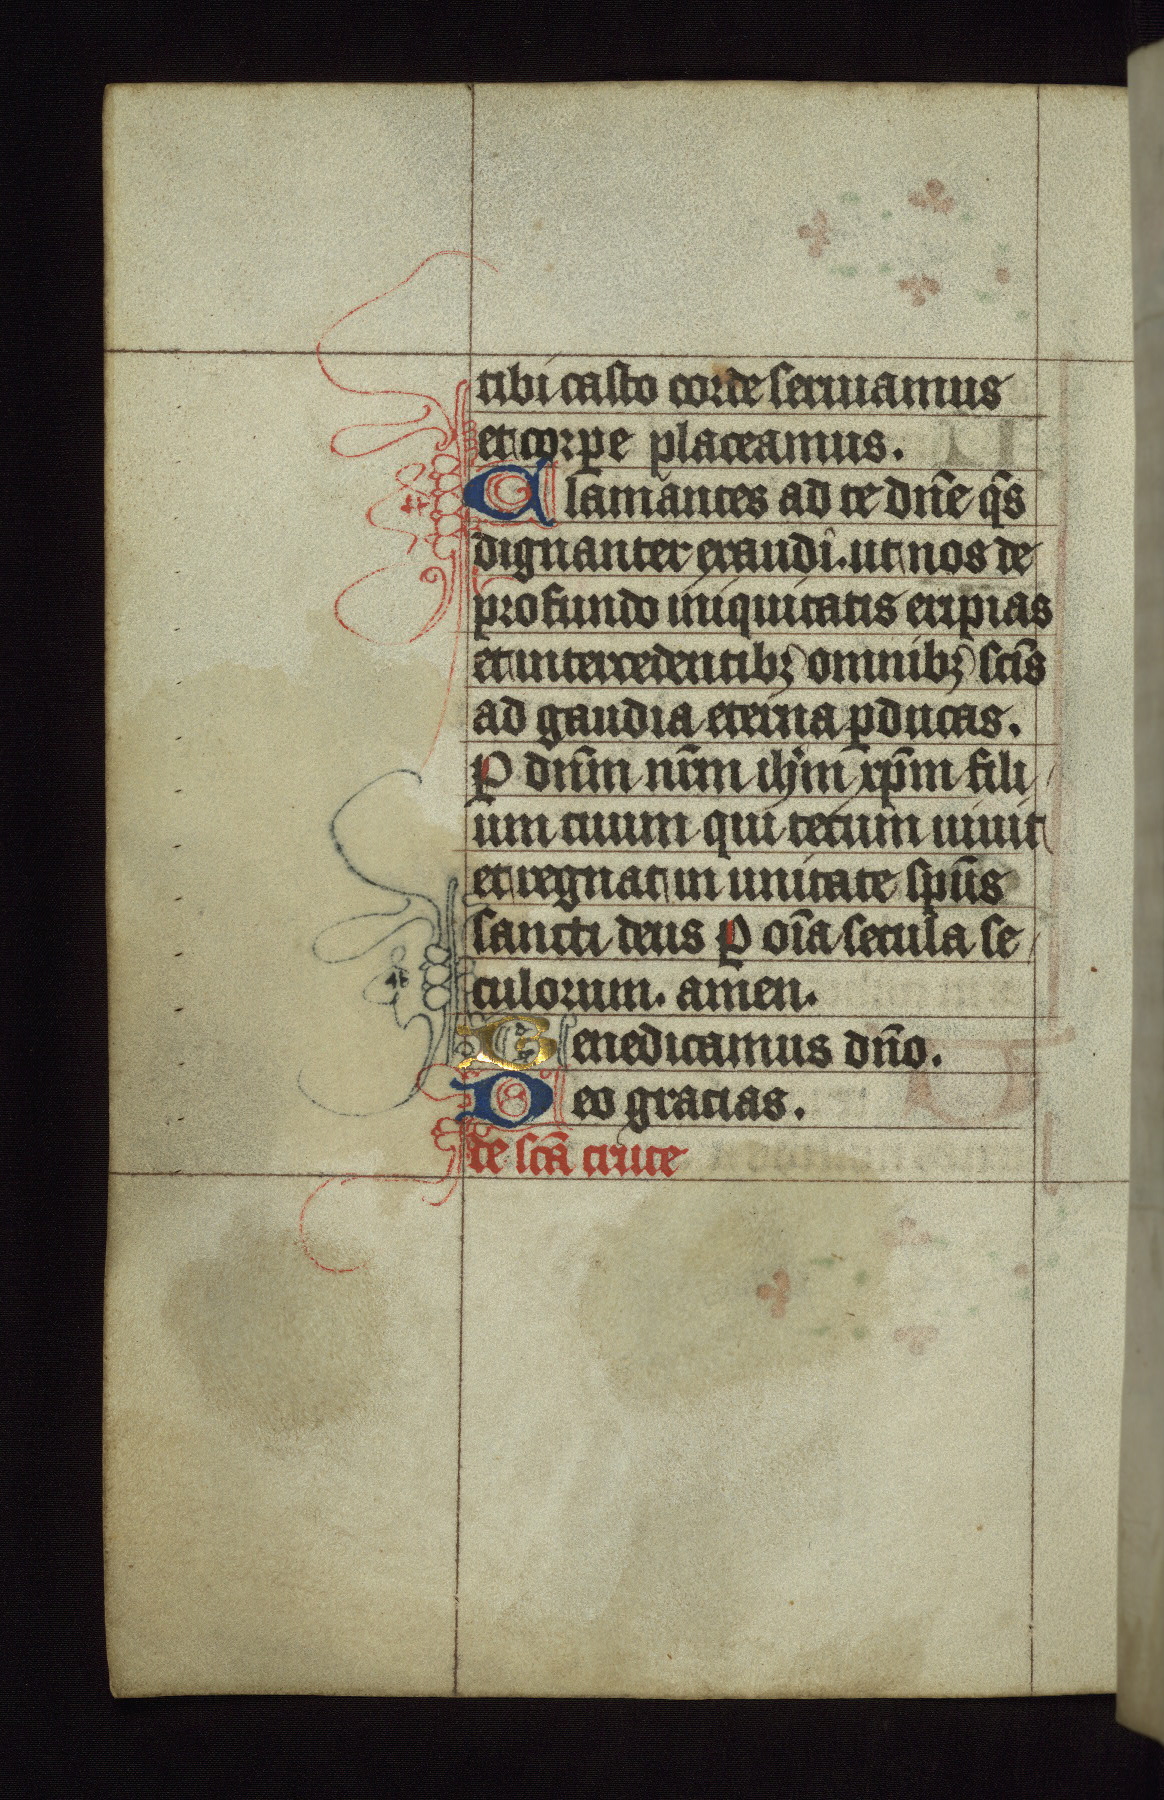 tibi casto corde seruiamus
et corpe placeamus.
Clamantes ad te dn̄e q̄s
dignanter exaudi. ut nos de
profundo iniquitatis eripias
et intercedentibꝫ omnibꝫ sc̄is
ad gaudia eterna ꝑducas.
P dn̄m nr̄m ih̄m xp̄m fili
um tuum qui tecum uiuit
et regnat in unitate sp̄us
sancti deus P oīa secula se
culorum. amen.
Benedicamus dn̄o.
Deo gracias.
de sc̄ā cruce